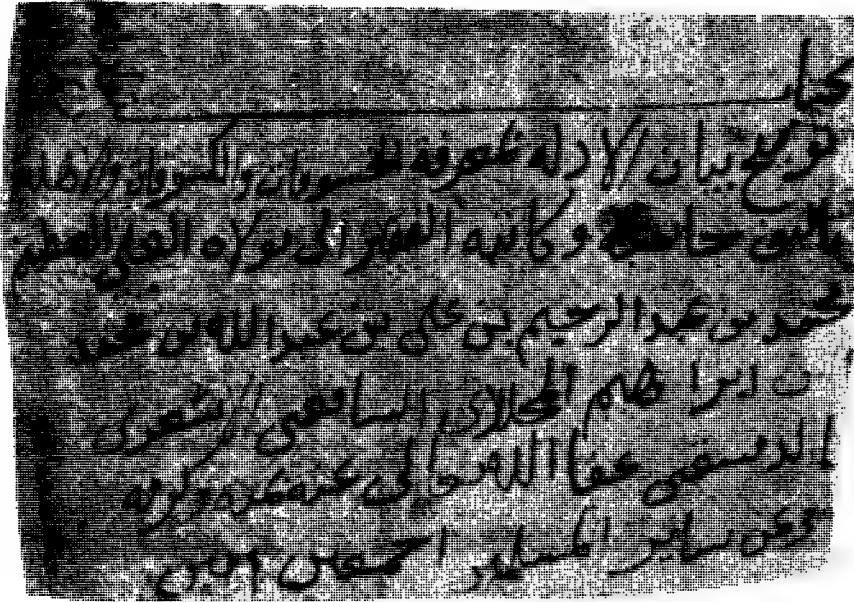 كتاب
توضيح بيان الادلة لمعرفة الخسوفات والكسوفات والاهلة
تاليف جامعه وكاتبه الفقير الى مولاه العلي العظيم
محمد بن عبد الرحيم بن علي بن عبد الله بن محمد
بن ابراهيم المخللاتي الشافعي الاشعري
الدمشقي عفا الله تعالى عنه بمنه وكرمه
وعن ساير المسلمين اجمعين امين